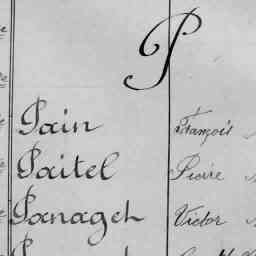 P
Pain François
Paitel Pierre
Panaget Victor